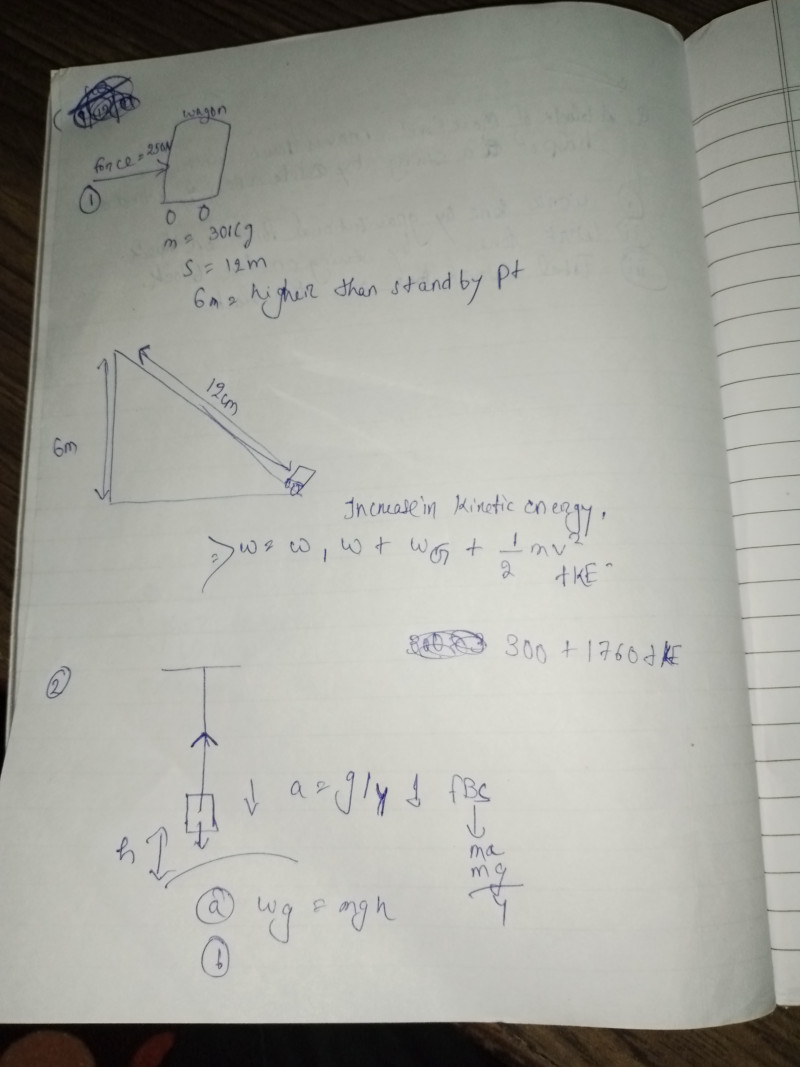 wagon
force = 250N
①
m = 30kg
S = 12m
6m = higher than stand by pt
12m
6m
Increase in kinetic energy.
=> w = w, w + wG + 1/2 mv²
+KE
300 + 1760 + KE
②
a = g/4 FBS
h
ma
mg
4
ⓐ wg = mgh
ⓑ